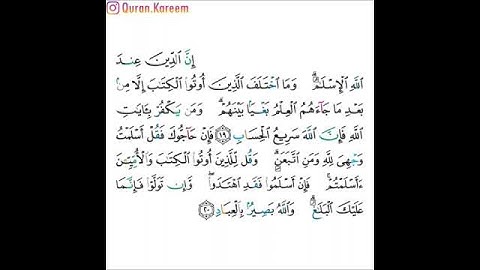 Quran.Kareem
إِنَّ ٱلدِّينَ عِندَ
ٱللَّهِ ٱلْإِسْلَٰمُ ۗ وَمَا ٱخْتَلَفَ ٱلَّذِينَ أُوتُوا۟ ٱلْكِتَٰبَ إِلَّا مِنۢ
بَعْدِ مَا جَآءَهُمُ ٱلْعِلْمُ بَغْيًۢا بَيْنَهُمْ ۗ وَمَن يَكْفُرْ بِـَٔايَٰتِ
ٱللَّهِ فَإِنَّ ٱللَّهَ سَرِيعُ ٱلْحِسَابِ ١٩ فَإِنْ حَآجُّوكَ فَقُلْ أَسْلَمْتُ
وَجْهِىَ لِلَّهِ وَمَنِ ٱتَّبَعَنِ ۗ وَقُل لِّلَّذِينَ أُوتُوا۟ ٱلْكِتَٰبَ وَٱلْأُمِّيِّـۧنَ
ءَأَسْلَمْتُمْ ۚ فَإِنْ أَسْلَمُوا۟ فَقَدِ ٱهْتَدَوا۟ ۖ وَّإِن تَوَلَّوْا۟ فَإِنَّمَا
عَلَيْكَ ٱلْبَلَٰغُ ۗ وَٱللَّهُ بَصِيرٌۢ بِٱلْعِبَادِ ٢٠